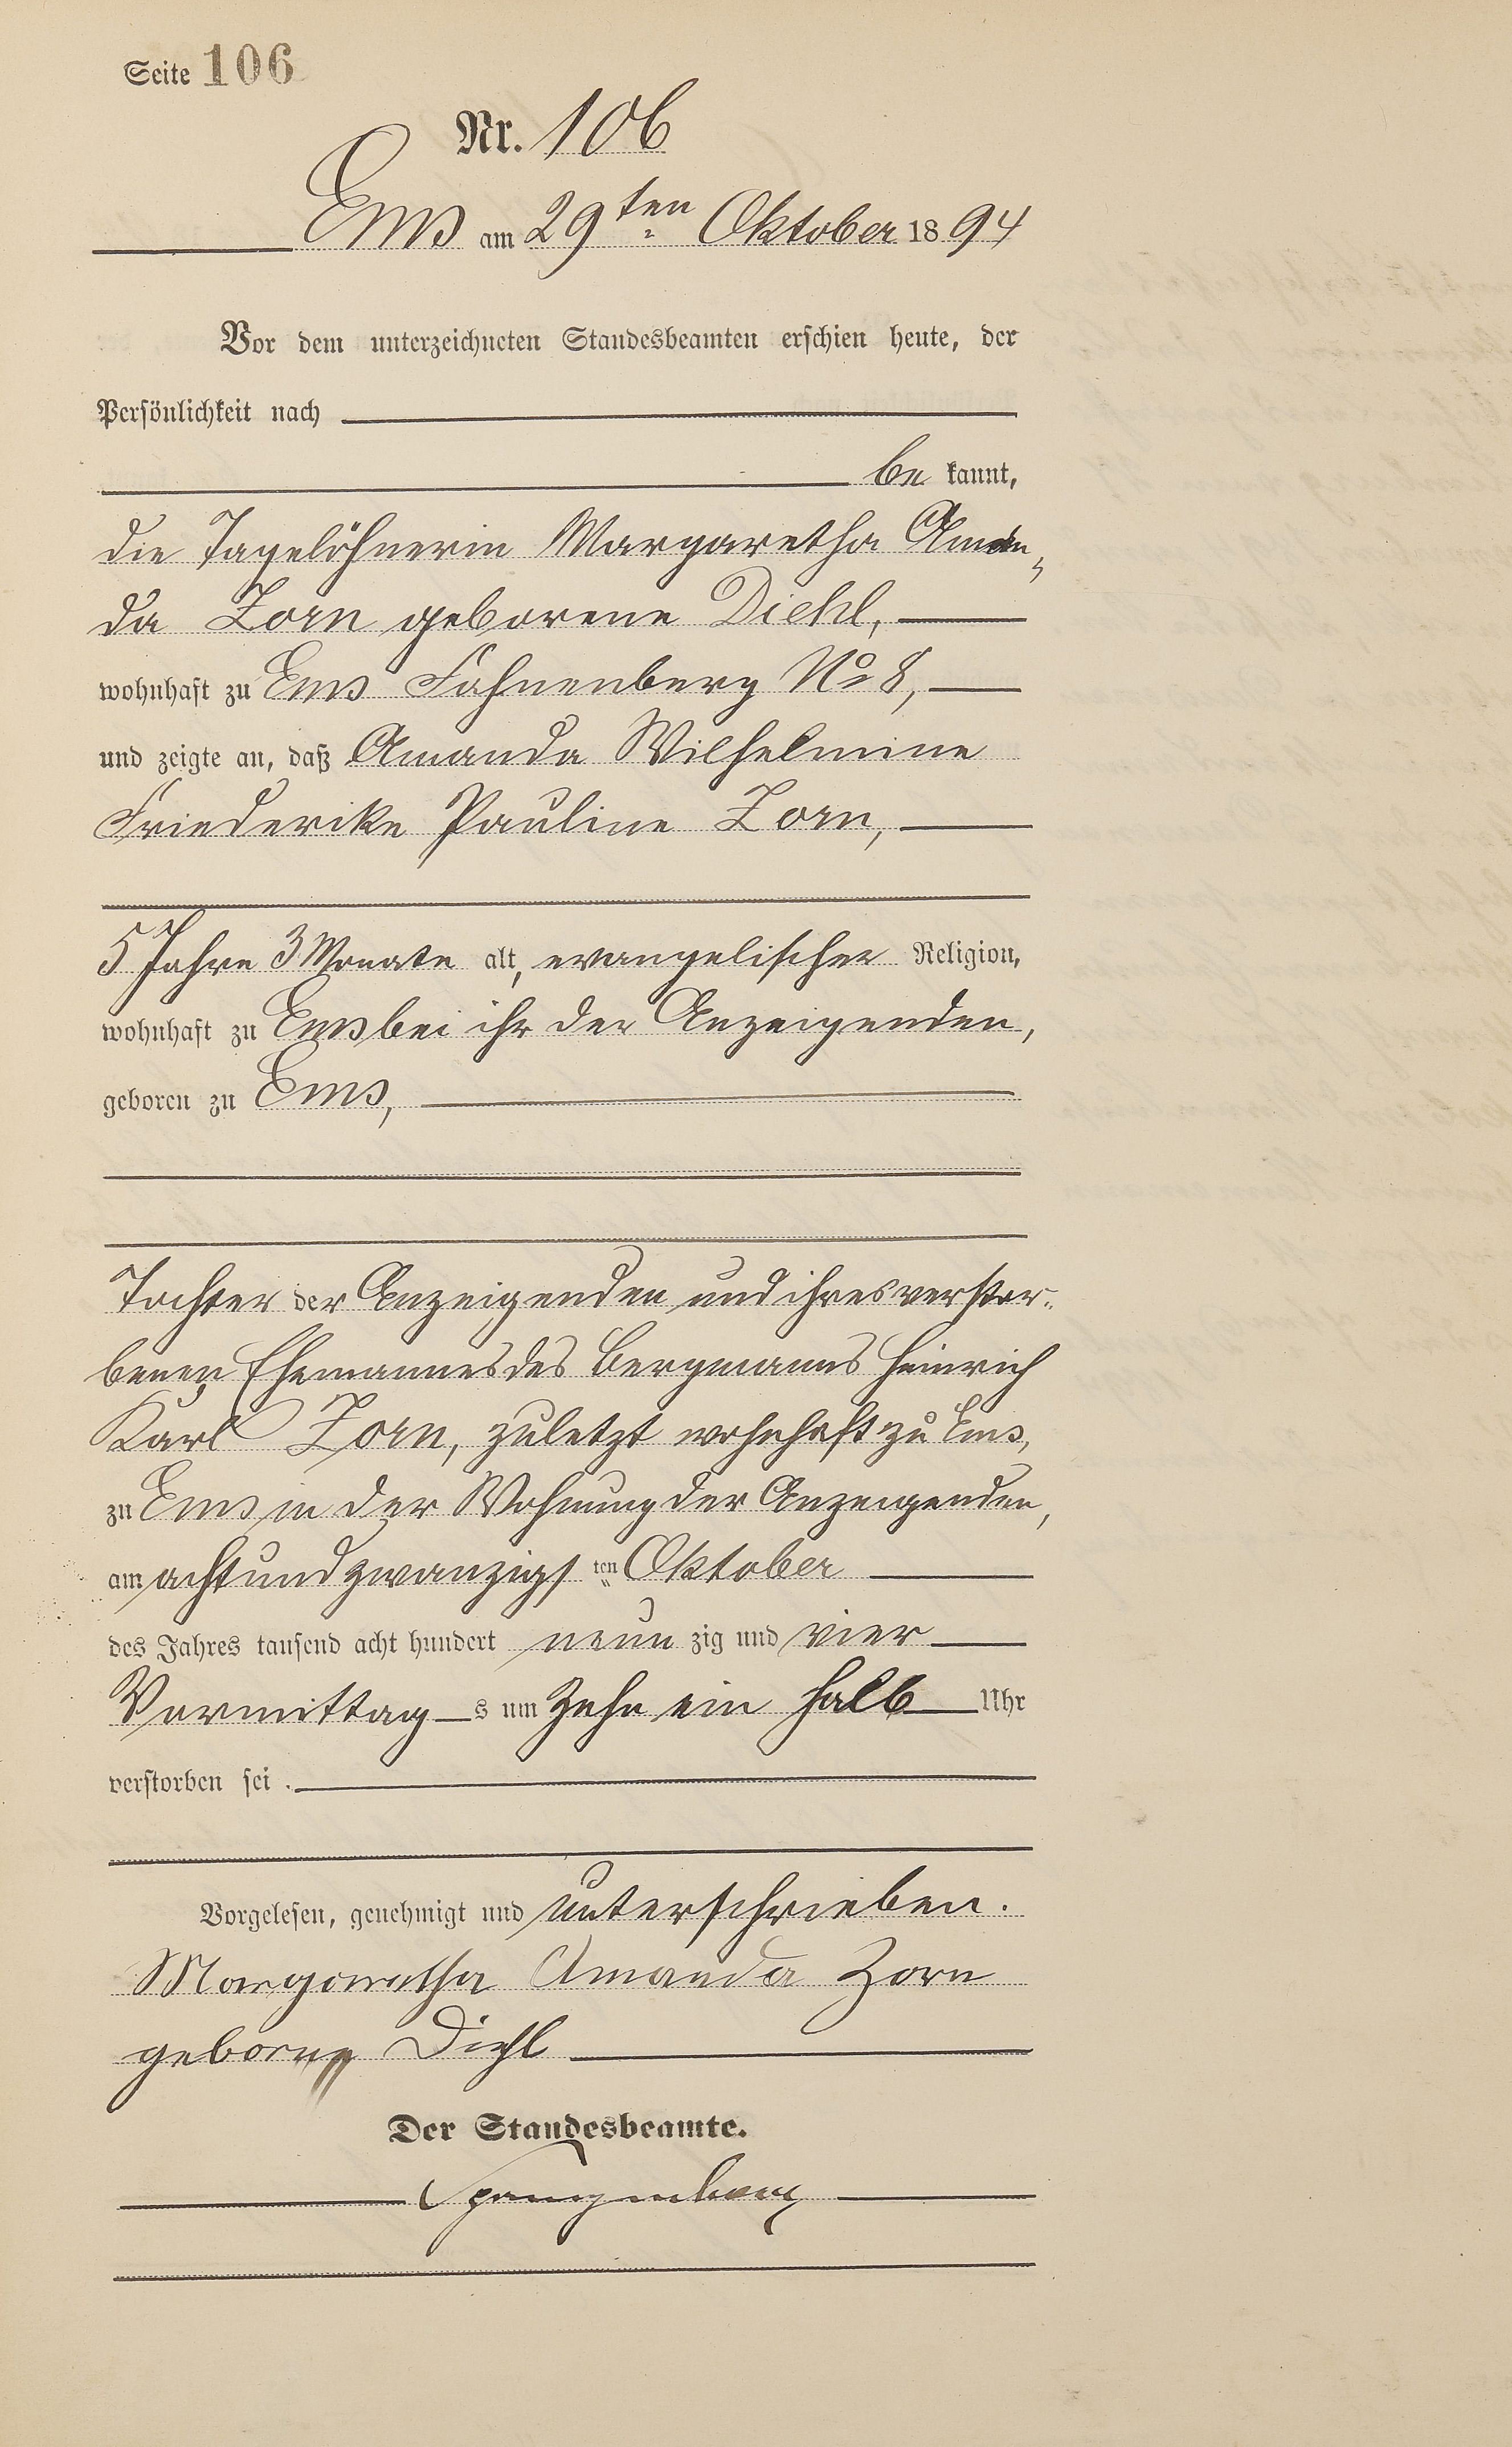 Seite 106
Nr. 106
Ems am 29ten Oktober 1894
Vor dem unterzeichneten Standesbeamten erschien heute, der
Persönlichkeit nach
be kannt,
die Tagelöhnerin Margaretha Aman-
da Zorn geborene Diehl,
wohnhaft zu Ems Fahnenberg No 8,
und zeigte an, daß Amanda Wilhelmine
Friederike Pauline Zorn,
5 Jahre 3 Monate alt, evangelischer Religion,
wohnhaft zu Ems bei ihr der Anzeigenden,
geboren zu Ems,
Tochter der Anzeigenden und ihres verstor-
benen Ehemannes des Bergmanns Heinrich
Karl Zorn, zuletzt wohnhaft zu Ems,
zu Ems in der Wohnung der Anzeigenden,
am achtundzwanzigsten Oktober
des Jahres tausend acht hundert neun zig und vier
Vormittags um Zehn ein halb Uhr
verstorben sei.
Vorgelesen, genehmigt und unterschrieben.
Margaretha Amanda Zorn
geborne Diehl
Der Standesbeamte.
Spangenberg